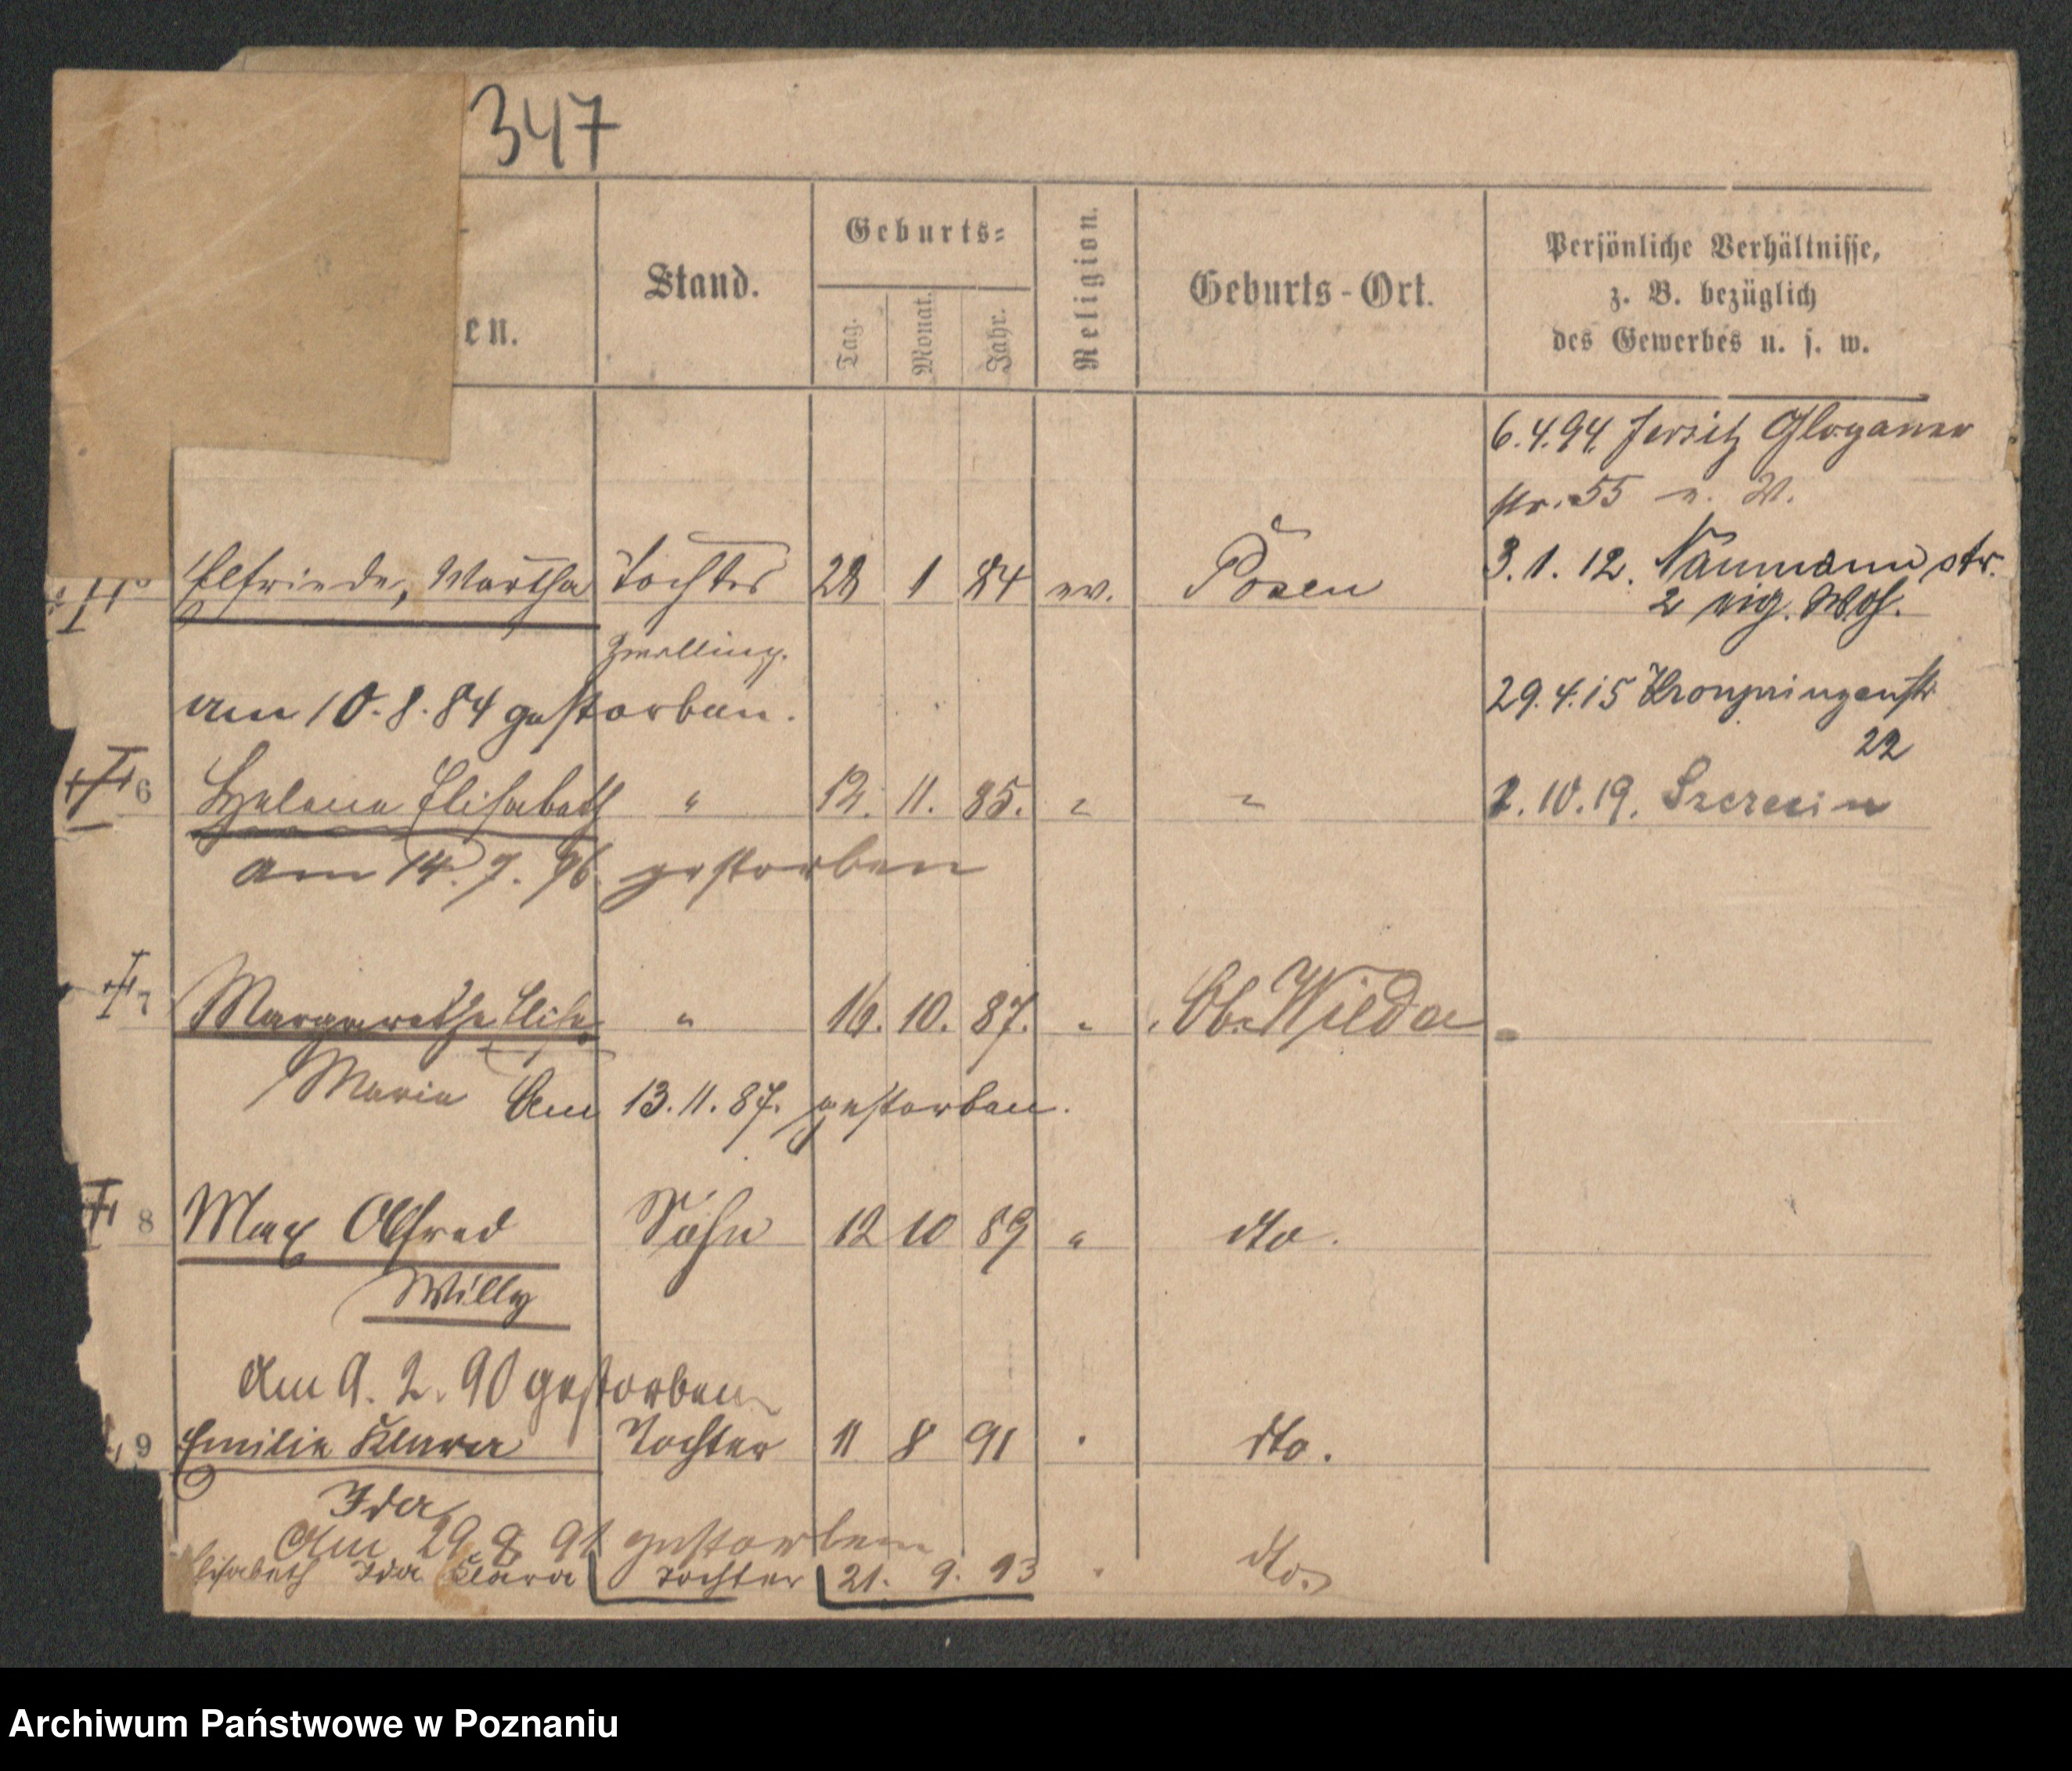 347
en.
Stand.
Geburts-
Tag.
Monat.
Jahr.
Religion.
Geburts-Ort.
Persönliche Verhältnisse,
z. B. bezüglich
des Gewerbes u. s. w.
6.4.94. Jersitz Glogauer
str. 55 W.
Elfriede, Martha Tochter 28 1 84 ev. Posen
3.1.12. Naumannstr.
2 eig. Woh.
Zwilling.
am 10.8.84 gestorben.
29.4.15 Kronprinzenstr
22
6 Helene Elisabeth " 12. 11. 85. " "
2.10.19. Szczecin
am 14.7.86 gestorben
7 Margarethe Elise " 16. 10. 87. " Ob. Wilda
Marie Am 13.11.87. gestorben.
8 Max Alfred Sohn 12 10 89 " dto.
Willy
Am 9.2.90 gestorben
9 Emilie Klara Tochter 11 8 91 " dto.
Ida
Am 29.8.91 gestorben
Elisabeth Ida Klara Tochter 21. 9. 93 " dto.
Archiwum Państwowe w Poznaniu